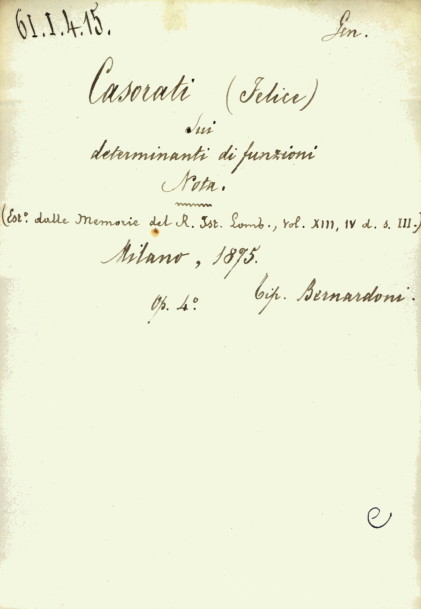 61.I.4.15.
Gen.
Casorati (Felice)
Sui
determinanti di funzioni
Nota.
(Est.º dalle Memorie del R. Ist. Lomb., Vol. XIII, IV d. s. III.)
Milano, 1875.
Op. 4.º
Tip. Bernardoni.
e